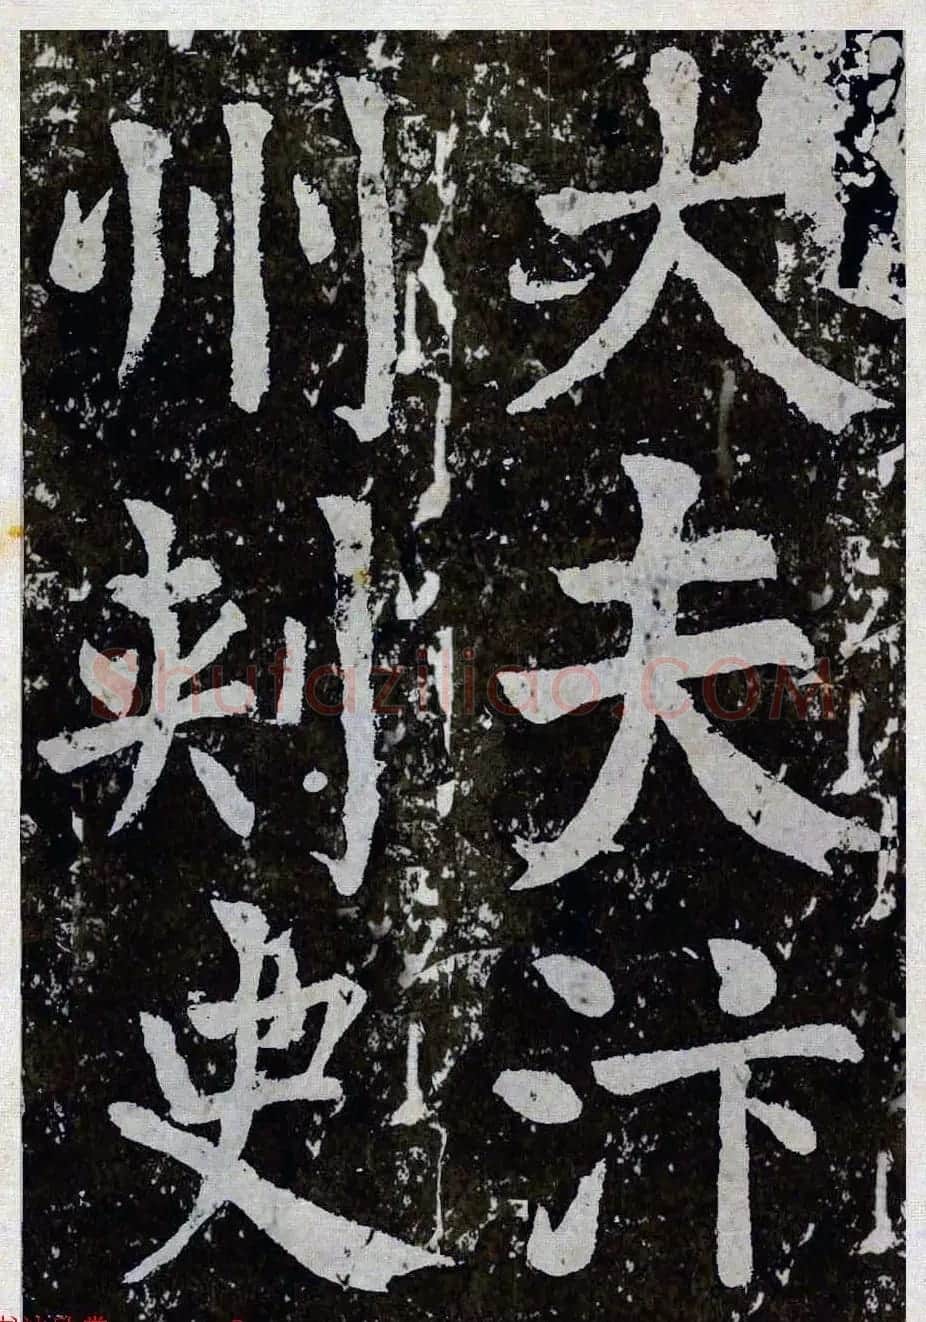 大夫汴
州刺史
Shufaziliao.COM